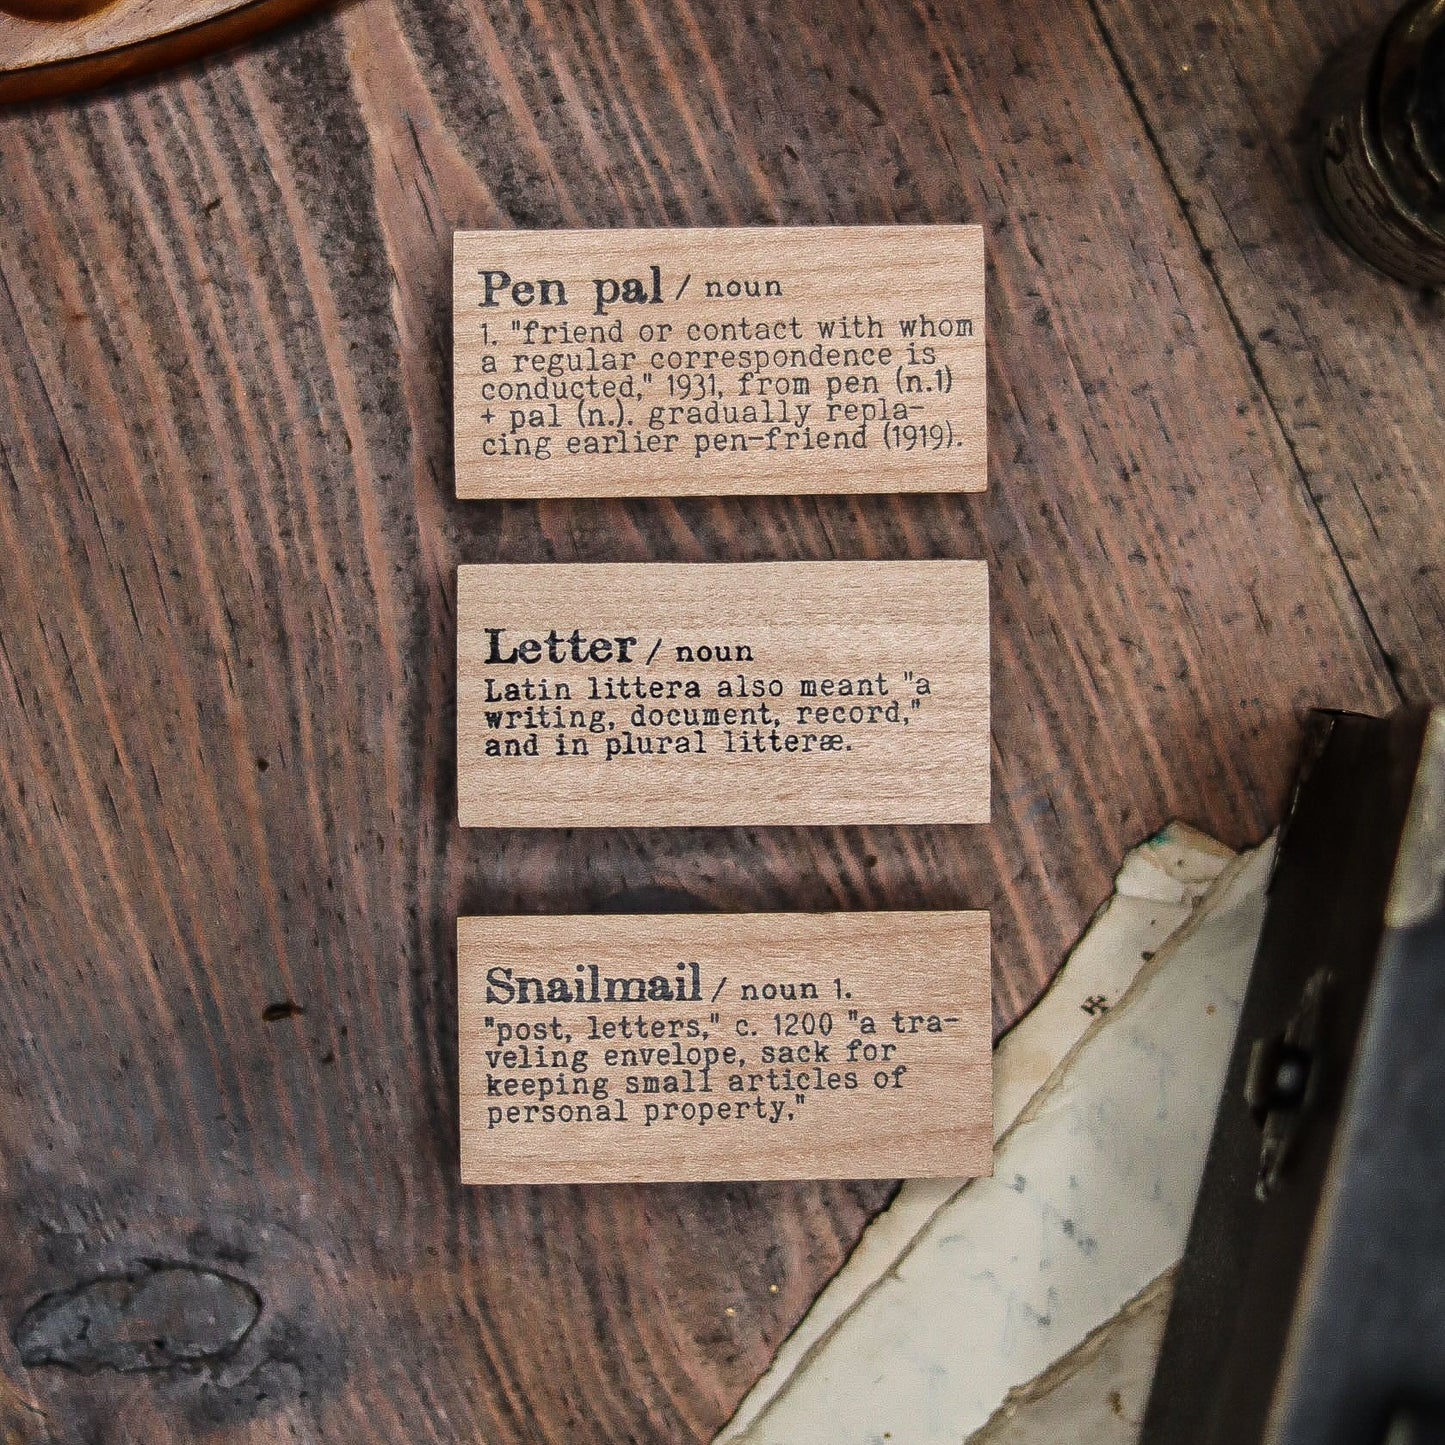 Pen pal / noun
1. "friend or contact with whom
a regular correspondence is
conducted," 1931, from pen (n.1)
+ pal (n.). gradually repla-
cing earlier pen-friend (1919).
Letter / noun
Latin littera also meant "a
writing, document, record,"
and in plural litteræ.
Snailmail / noun 1.
"post, letters," c. 1200 "a tra-
veling envelope, sack for
keeping small articles of
personal property,"